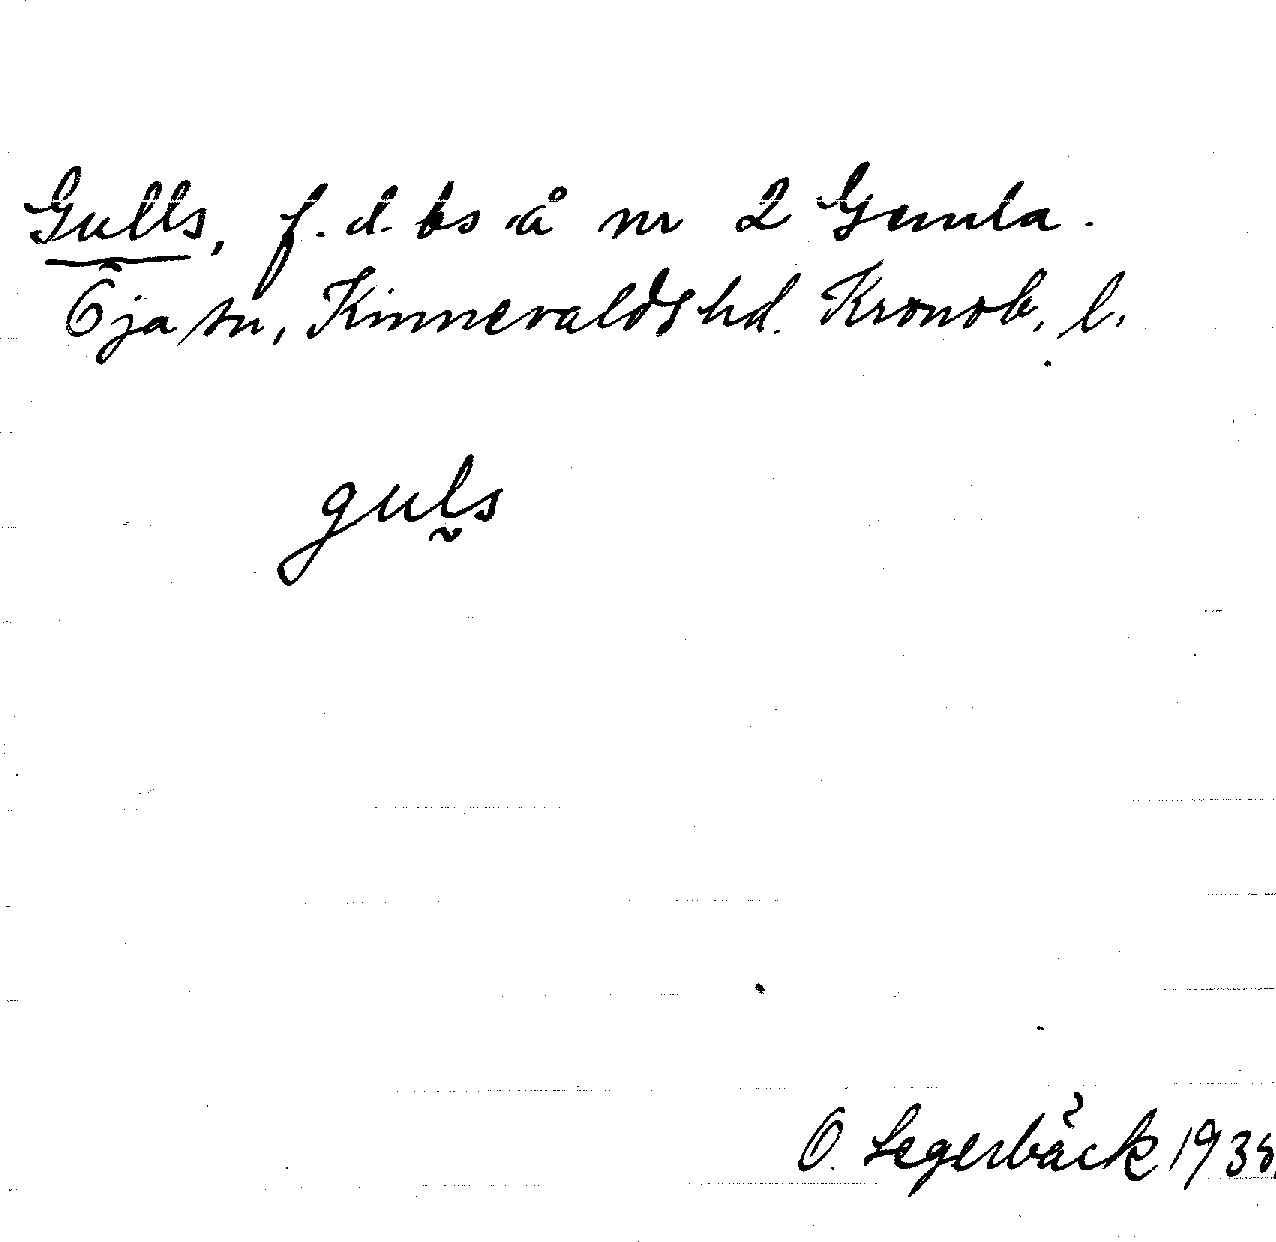 Gulls, f. d. bs å nr 2 Gemla.
Öja sn, Kinnevalds hd. Kronob. l.
gul̰s
O. Segerbäck 1938.